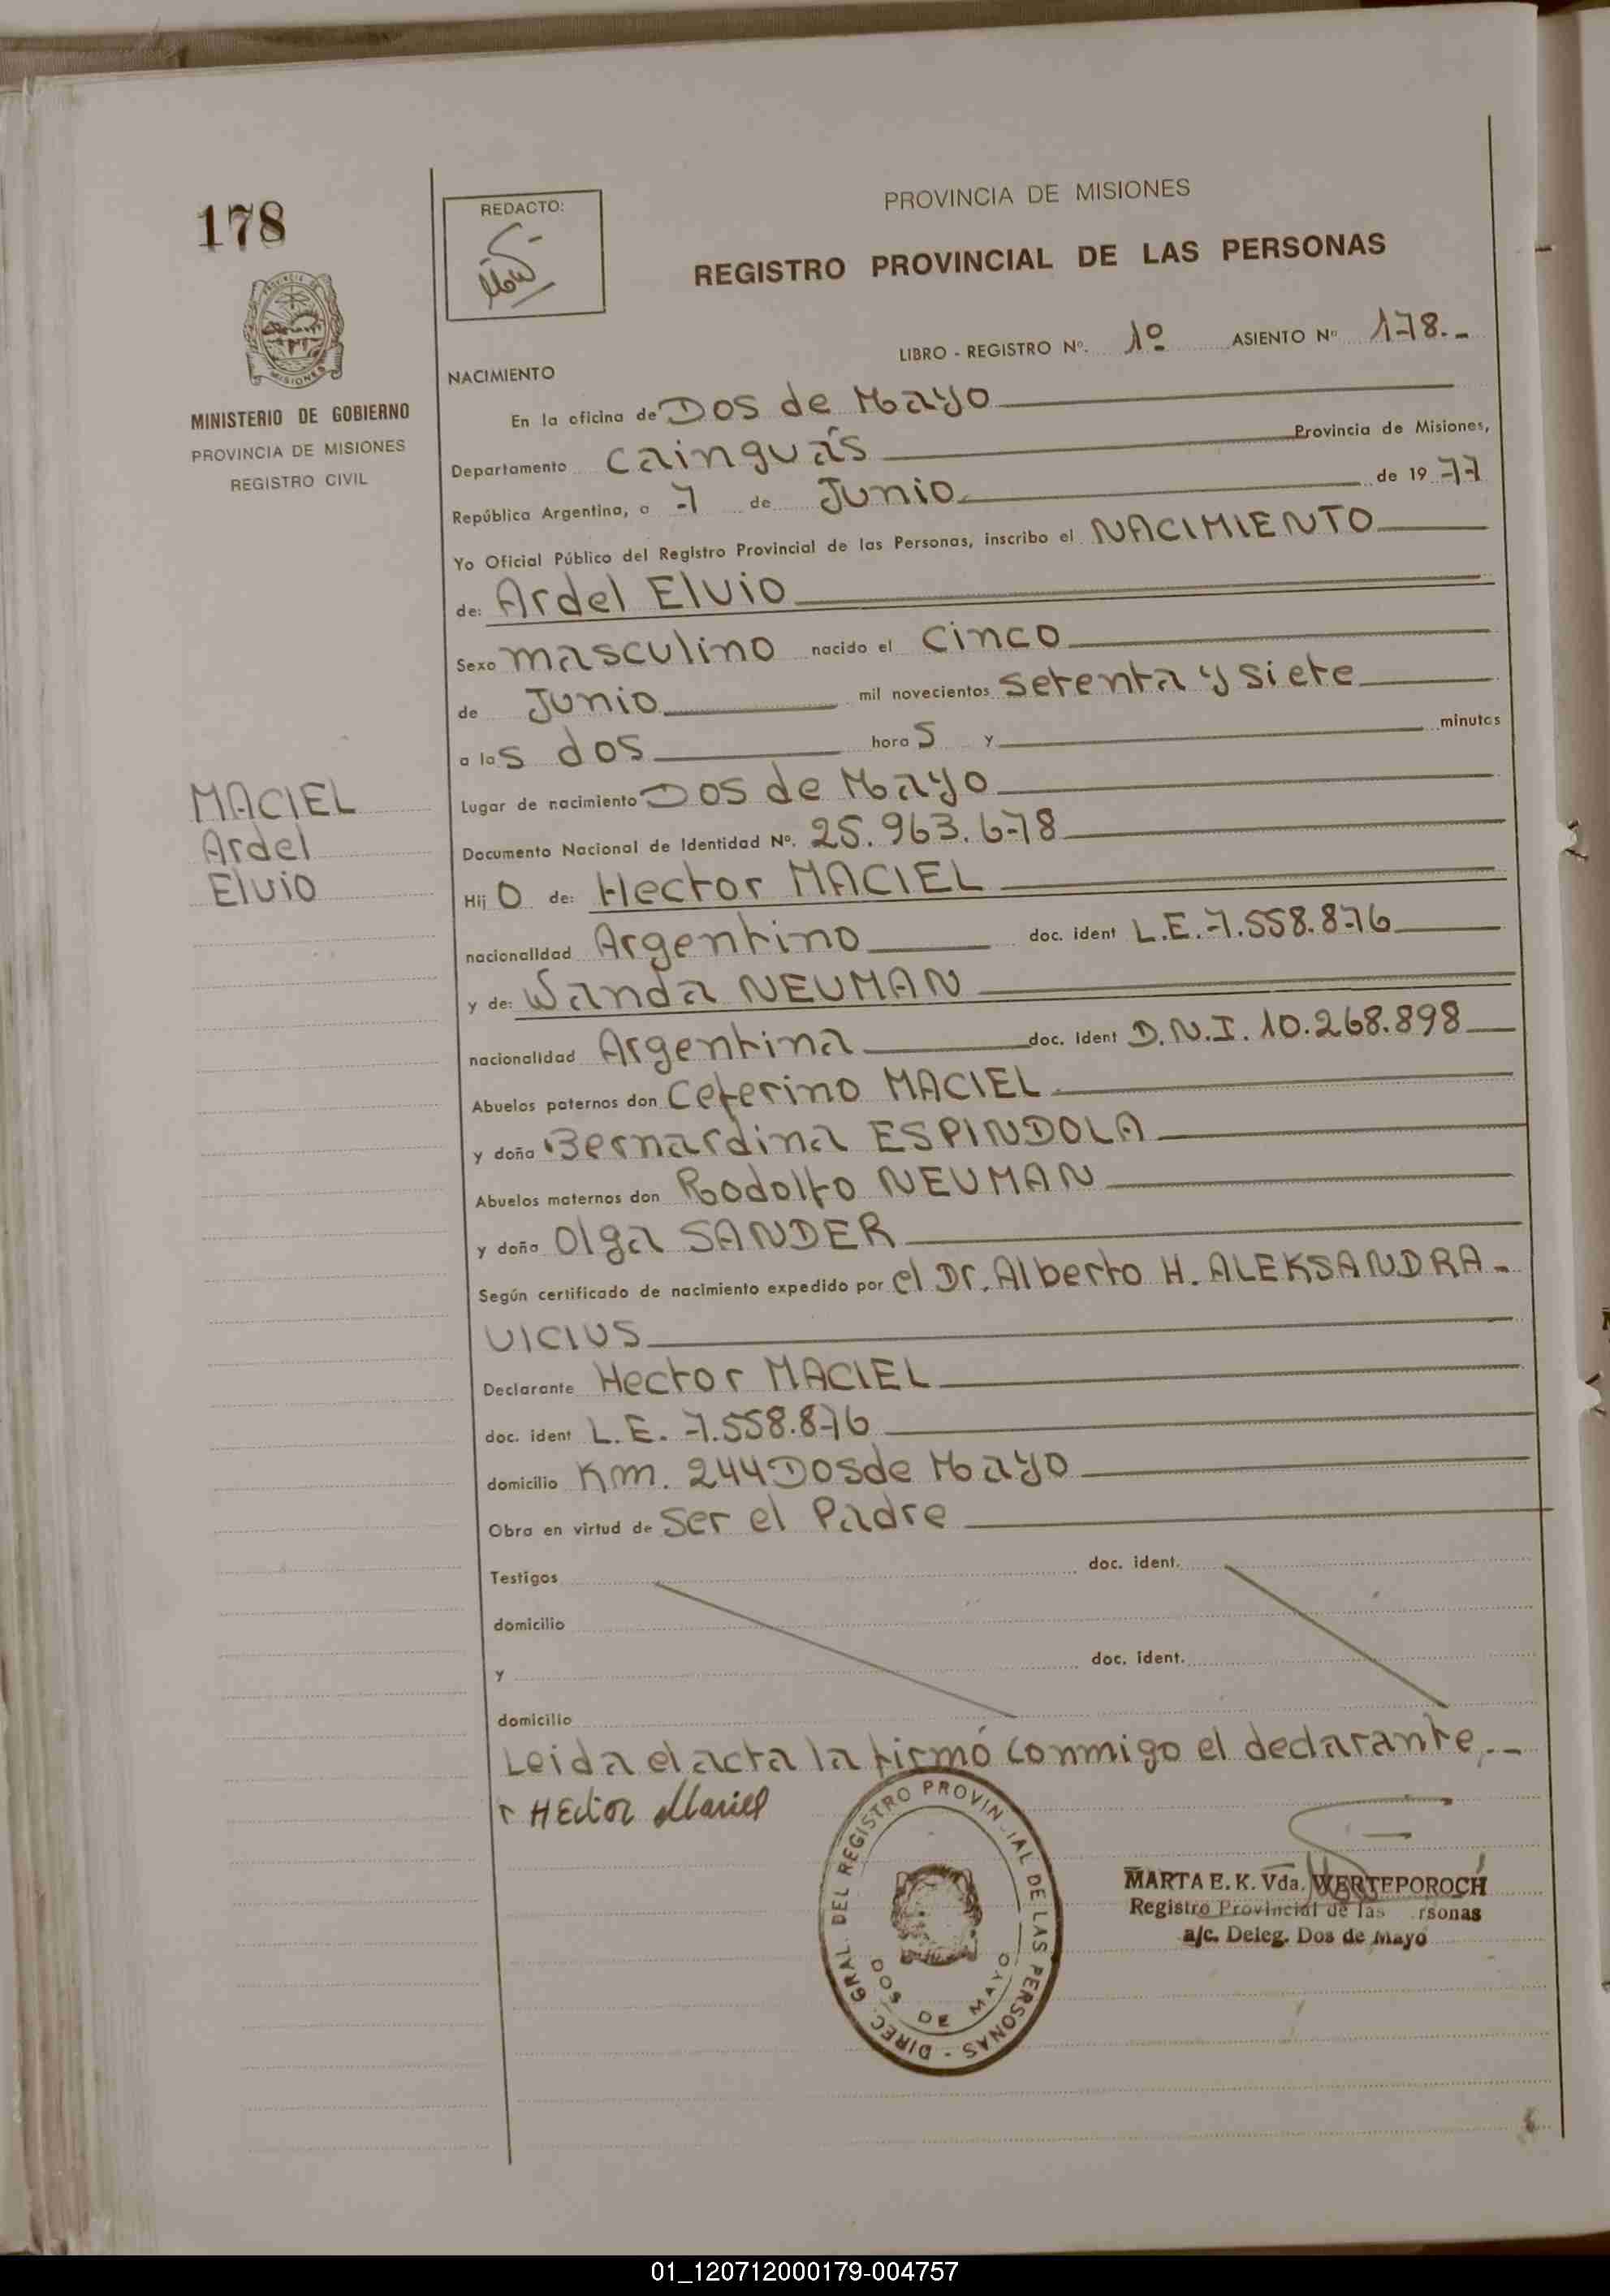 178
REDACTO:
PROVINCIA DE MISIONES
REGISTRO PROVINCIAL DE LAS PERSONAS
LIBRO - REGISTRO Nº. 1º ASIENTO Nº 178.-
PROVINCIA DE
MISIONES
MINISTERIO DE GOBIERNO
PROVINCIA DE MISIONES
REGISTRO CIVIL
NACIMIENTO
En la oficina de Dos de Mayo
Departamento Cainguás Provincia de Misiones,
República Argentina, a 7 de Junio de 1977
Yo Oficial Público del Registro Provincial de las Personas, inscribo el NACIMIENTO
de: Ardel Elvio
Sexo masculino nacido el cinco
de Junio mil novecientos setenta y siete
a las dos horas y minutos
MACIEL
Ardel
Elvio
Lugar de nacimiento Dos de Mayo
Documento Nacional de Identidad Nº. 25.963.678
Hijo de: Hector MACIEL
nacionalidad Argentino doc. ident L.E. 7.558.876
y de: Wanda NEUMAN
nacionalidad Argentina doc. ident D.N.I. 10.268.898
Abuelos paternos don Ceferino MACIEL
y doña Bernardina ESPINDOLA
Abuelos maternos don Rodolfo NEUMAN
y doña Olga SANDER
Según certificado de nacimiento expedido por el Dr. Alberto H. ALEKSANDRA-
VICIUS
Declarante Hector MACIEL
doc. ident L.E. 7.558.876
domicilio Km. 244 Dos de Mayo
Obra en virtud de ser el Padre
Testigos doc. ident.
domicilio
y doc. ident.
domicilio
Leida el acta la firmó conmigo el declarante,.-
HEctor Maciel
DIREC. GRAL. DEL REGISTRO PROVINCIAL DE LAS PERSONAS -
DOS DE MAYO
MARTA E. K. Vda. WERTEPOROCH
Registro Provincial de las rsonas
a/c. Deleg. Dos de Mayo
01_120712000179-004757